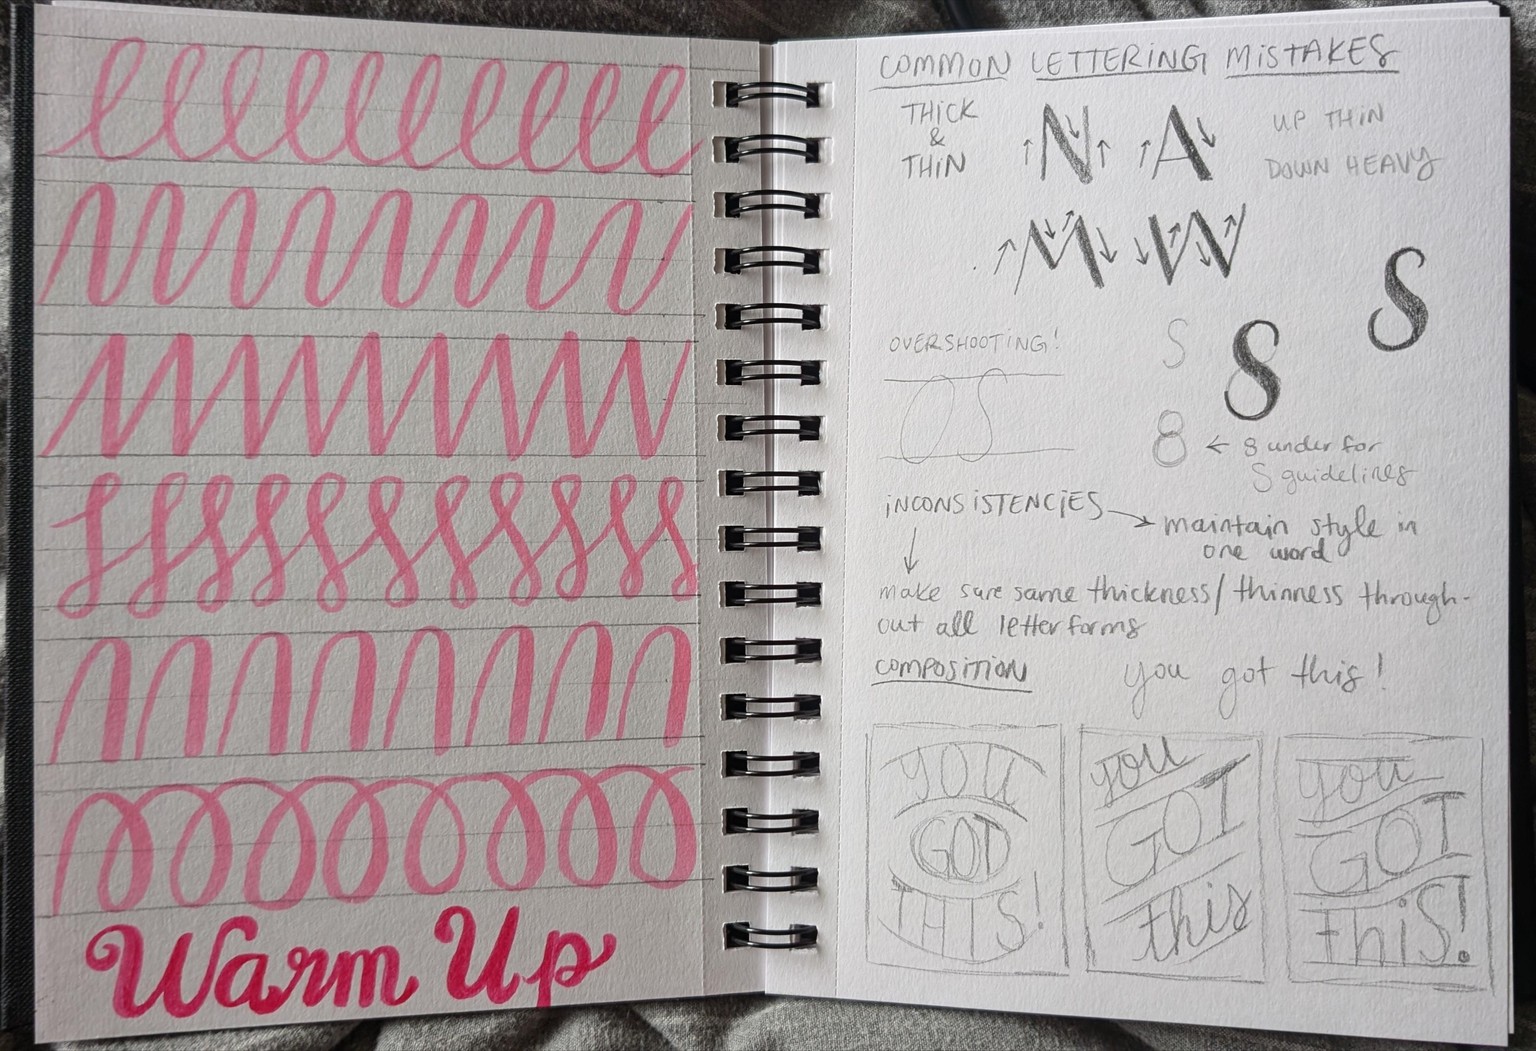 Warm Up
COMMON LETTERING MISTAKES
THICK
&
THIN
N A
UP THIN
DOWN HEAVY
M W
S
OVERSHOOTING!
OS
S
S
8
← 8 under for
S guidelines
INCONSISTENCIES
maintain style in
one word
make sure same thickness/thinness through-
out all letterforms
COMPOSITION
you got this!
YOU
GOT
THIS!
you
GOT
this
you
GOT
thiS!